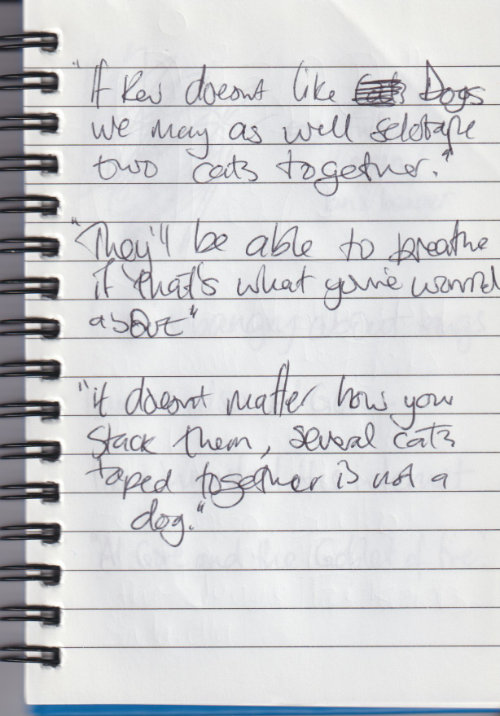 "If Kev doesnt like Dogs
we may as well selotape
two cats together."
"They'll be able to breathe
if that's what you're worried
about"
"it doesnt matter how you
stack them, several cats
taped together is not a
dog."